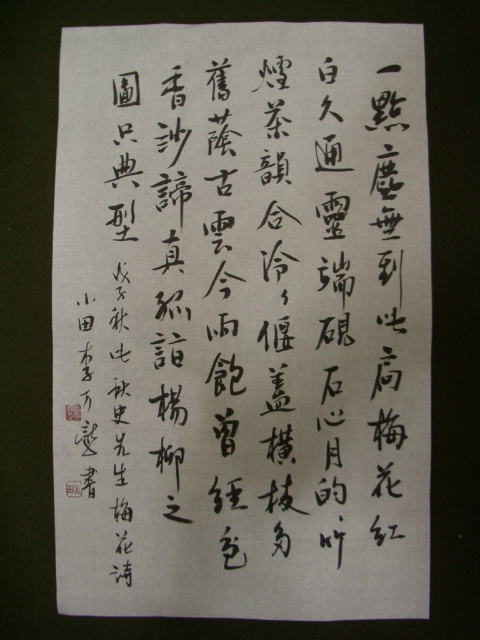 一點塵無到此扃梅花紅
白久通靈端硯石心月的吟
煙茶韻合泠々偃蓋橫枝多
舊蔭古雲今雨飽曾經色
香妙諦真孤詣楊柳之
圖只典型
戊子秋此秋史先生梅花詩
小田李可龍書